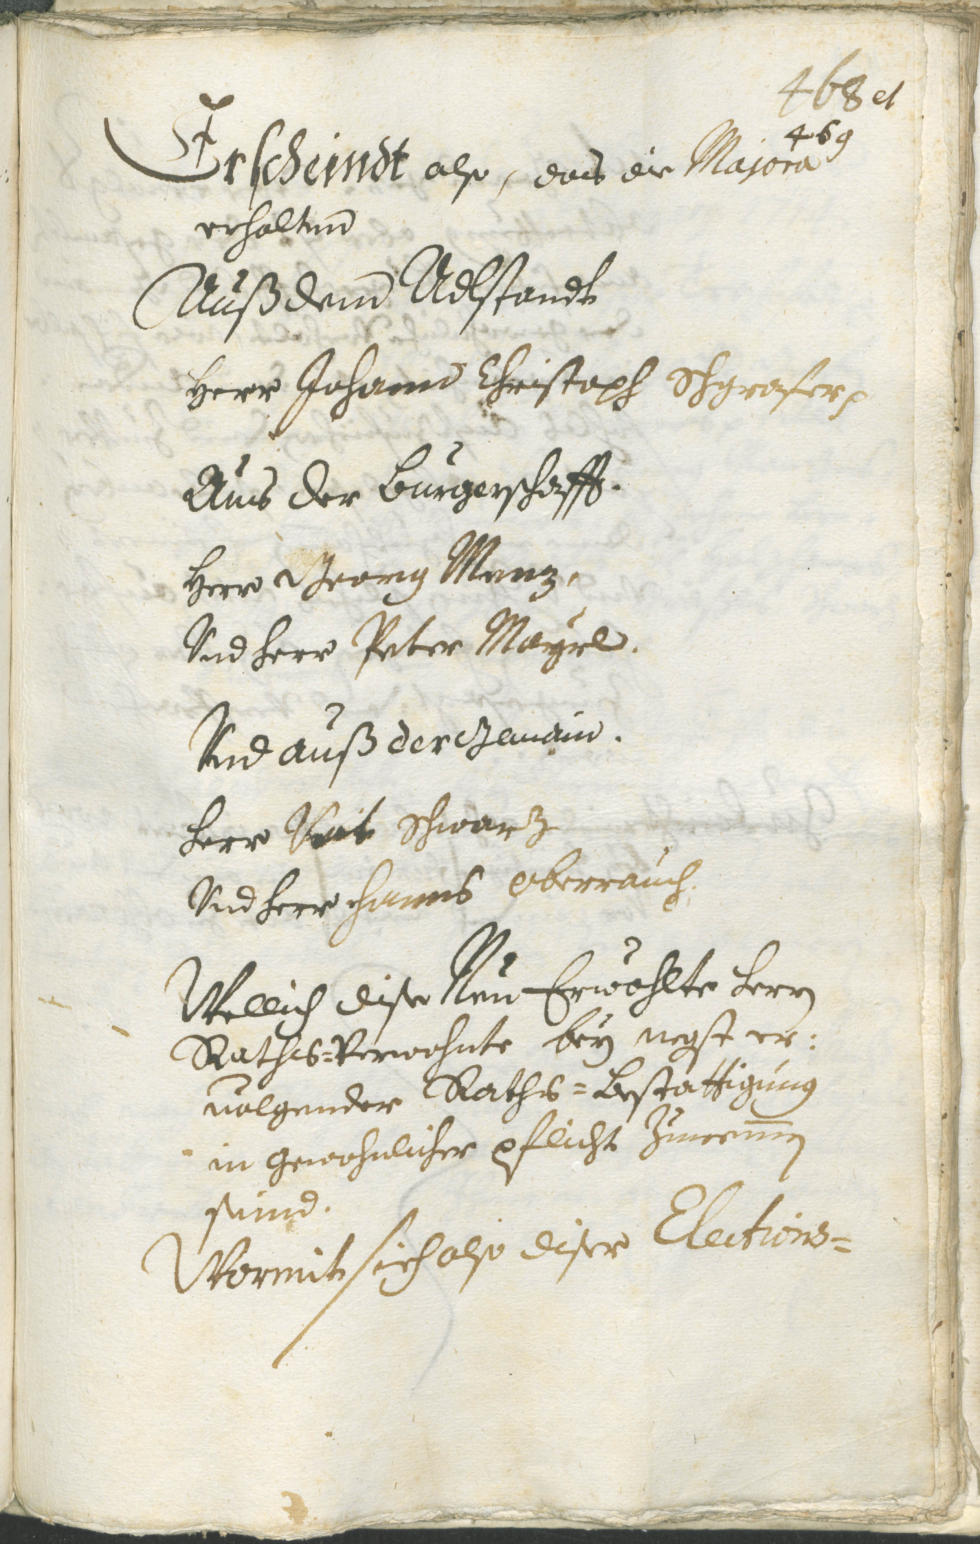 468 et
469
Erscheindt also, das die Majora
erhalten
Auß dem Adlstandt
Herr Johann Christoph Schgraffer
Aus der Burgerschafft.
Herr Georg Menz,
Und Herr Peter Mayrl.
Und auß der Gemain.
Herr Veit Schwarz
Und Herr Hanns Oberrauch,
Wellich dise Neu-Erwöhlte Herrn
Raths-Verwohnte bey negst er:
volgender Raths-Bestättigung
in gewohnlicher pflicht Zunemmen
seind.
Wormit sich also diser Elections=